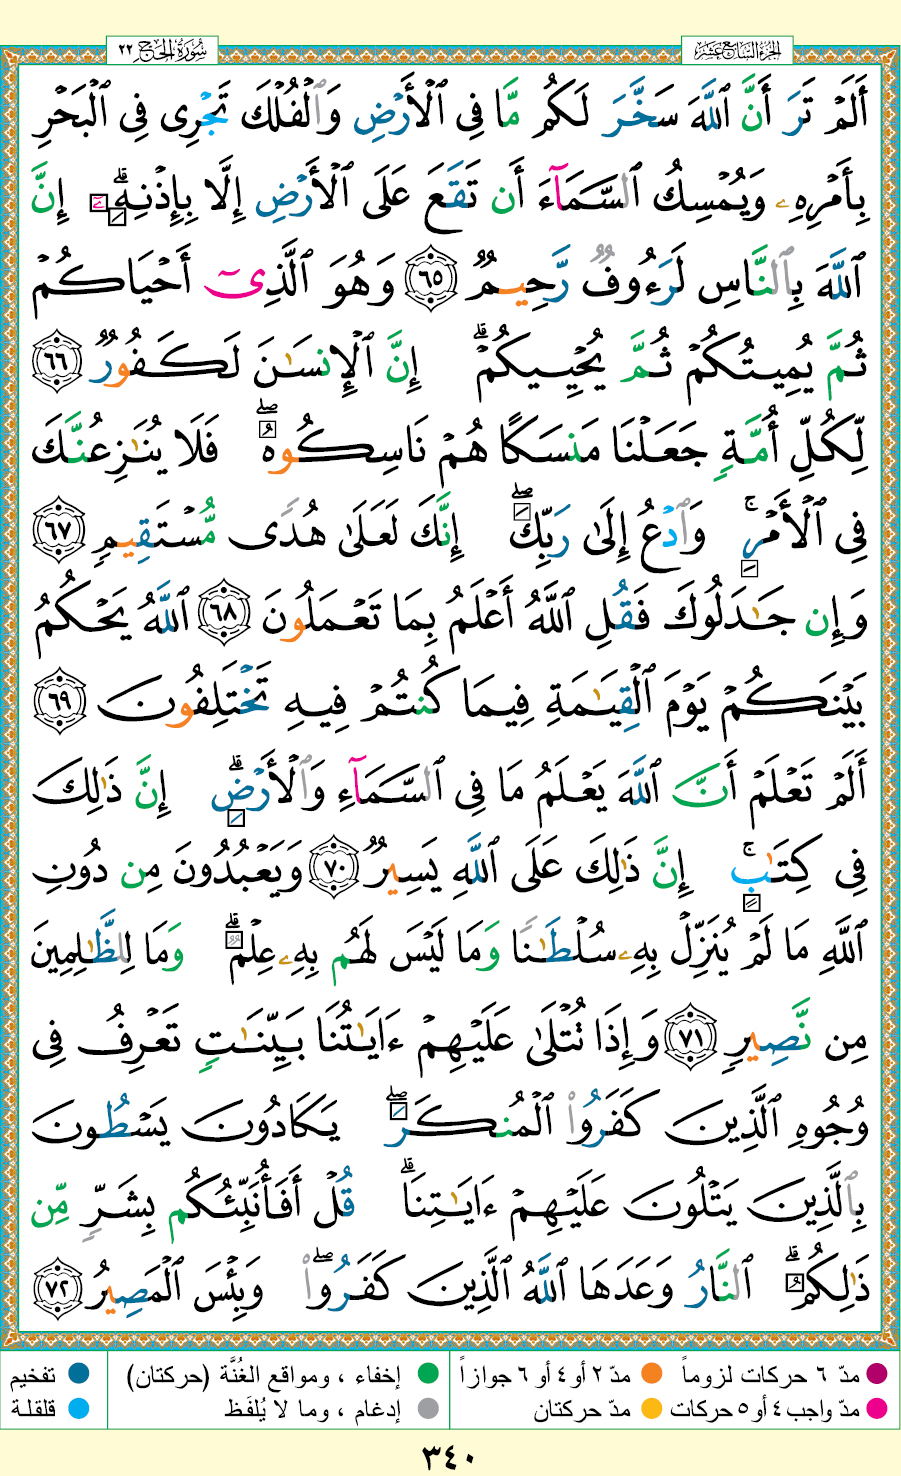 الجزء السابع عشر
سورة الحج ٢٢
أَلَمْ تَرَ أَنَّ ٱللَّهَ سَخَّرَ لَكُم مَّا فِى ٱلْأَرْضِ وَٱلْفُلْكَ تَجْرِى فِى ٱلْبَحْرِ
بِأَمْرِهِۦ وَيُمْسِكُ ٱلسَّمَآءَ أَن تَقَعَ عَلَى ٱلْأَرْضِ إِلَّا بِإِذْنِهِۦٓ ۗ إِنَّ
ٱللَّهَ بِٱلنَّاسِ لَرَءُوفٌ رَّحِيمٌ ٦٥ وَهُوَ ٱلَّذِىٓ أَحْيَاكُمْ
ثُمَّ يُمِيتُكُمْ ثُمَّ يُحْيِيكُمْ ۗ إِنَّ ٱلْإِنسَـٰنَ لَكَفُورٌ ٦٦
لِّكُلِّ أُمَّةٍ جَعَلْنَا مَنسَكًا هُمْ نَاسِكُوهُ ۖ فَلَا يُنَـٰزِعُنَّكَ
فِى ٱلْأَمْرِ ۚ وَٱدْعُ إِلَىٰ رَبِّكَ ۖ إِنَّكَ لَعَلَىٰ هُدًى مُّسْتَقِيمٍ ٦٧
وَإِن جَـٰدَلُوكَ فَقُلِ ٱللَّهُ أَعْلَمُ بِمَا تَعْمَلُونَ ٦٨ ٱللَّهُ يَحْكُمُ
بَيْنَكُمْ يَوْمَ ٱلْقِيَـٰمَةِ فِيمَا كُنتُمْ فِيهِ تَخْتَلِفُونَ ٦٩
أَلَمْ تَعْلَمْ أَنَّ ٱللَّهَ يَعْلَمُ مَا فِى ٱلسَّمَآءِ وَٱلْأَرْضِ ۗ إِنَّ ذَٰلِكَ
فِى كِتَـٰبٍ ۚ إِنَّ ذَٰلِكَ عَلَى ٱللَّهِ يَسِيرٌ ٧٠ وَيَعْبُدُونَ مِن دُونِ
ٱللَّهِ مَا لَمْ يُنَزِّلْ بِهِۦ سُلْطَـٰنًا وَمَا لَيْسَ لَهُم بِهِۦ عِلْمٌ ۗ وَمَا لِلظَّـٰلِمِينَ
مِن نَّصِيرٍ ٧١ وَإِذَا تُتْلَىٰ عَلَيْهِمْ ءَايَـٰتُنَا بَيِّنَـٰتٍ تَعْرِفُ فِى
وُجُوهِ ٱلَّذِينَ كَفَرُوا۟ ٱلْمُنكَرَ ۖ يَكَادُونَ يَسْطُونَ
بِٱلَّذِينَ يَتْلُونَ عَلَيْهِمْ ءَايَـٰتِنَا ۗ قُلْ أَفَأُنَبِّئُكُم بِشَرٍّ مِّن
ذَٰلِكُمُ ۗ ٱلنَّارُ وَعَدَهَا ٱللَّهُ ٱلَّذِينَ كَفَرُوا۟ ۖ وَبِئْسَ ٱلْمَصِيرُ ٧٢
مدّ ٦ حركات لزوماً
مدّ ٢ أو ٤ أو ٦ جوازاً
إخفاء ، ومواقع الغُنَّة (حركتان)
تفخيم
مدّ واجب ٤ أو ٥ حركات
مدّ حركتان
إدغام ، وما لا يُلفَظ
قلقلة
٣٤٠